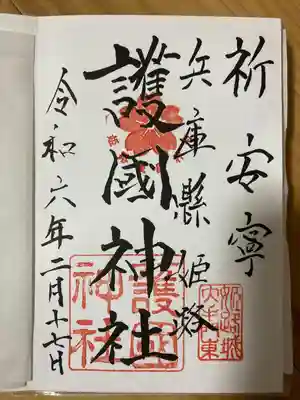 祈安寧
兵庫縣姫路
護國神社
令和六年二月十七日
護國
神社
姫路城
大手東